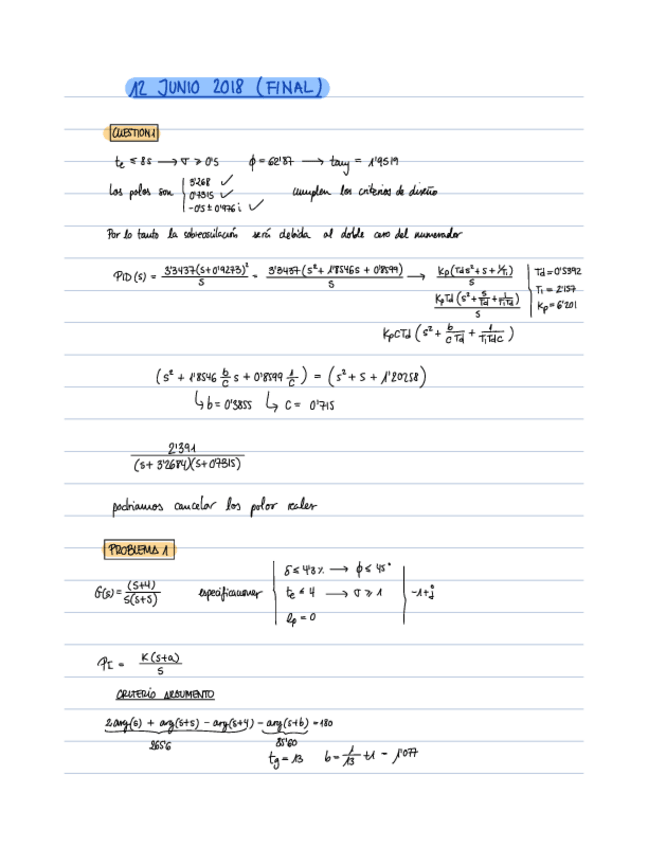 12 JUNIO 2018 (FINAL)
CUESTION 1
te ≤ 8s → σ ≥ 0'5 φ = 62'87 → tanφ = 1'9519
Los polos son | 3'268 ✓ cumplen los criterios de diseño
0'7315 ✓
-0'5 ± 0'976 i ✓
Por lo tanto la sobreoscilación será debida al doble cero del numerador
PID(s) = 3'3437(s+0'9273)² / s = 3'3437(s² + 1'8546s + 0'8599) / s → Kp(Td s² + s + 1/Ti) / s | Td = 0'5392
KpTd(s² + s/Td + 1/TiTd) / s | Ti = 2'157
Kp = 6'201
KpcTd (s² + b/cTd + 1/TiTdc)
(s² + 1'8546 b/c s + 0'8599 1/c) = (s² + s + 1'20258)
↳ b = 0'3855 ↳ c = 0'715
2'391 / (s+3'2684)(s+0'7315)
podriamos cancelar los polor reales
PROBLEMA 1
G(s) = (s+4) / s(s+5) especificaciones | δ ≤ 4'3% → φ ≤ 45° | -1+j
te ≤ 4 → σ ≥ 1
ep = 0
PI = K(s+a) / s
CRITERIO ARGUMENTO
2arg(s) + arg(s+5) - arg(s+4) - arg(s+b) = 180
265'6 85'60
tg = 13 b = 1/13 + 1 = 1'077